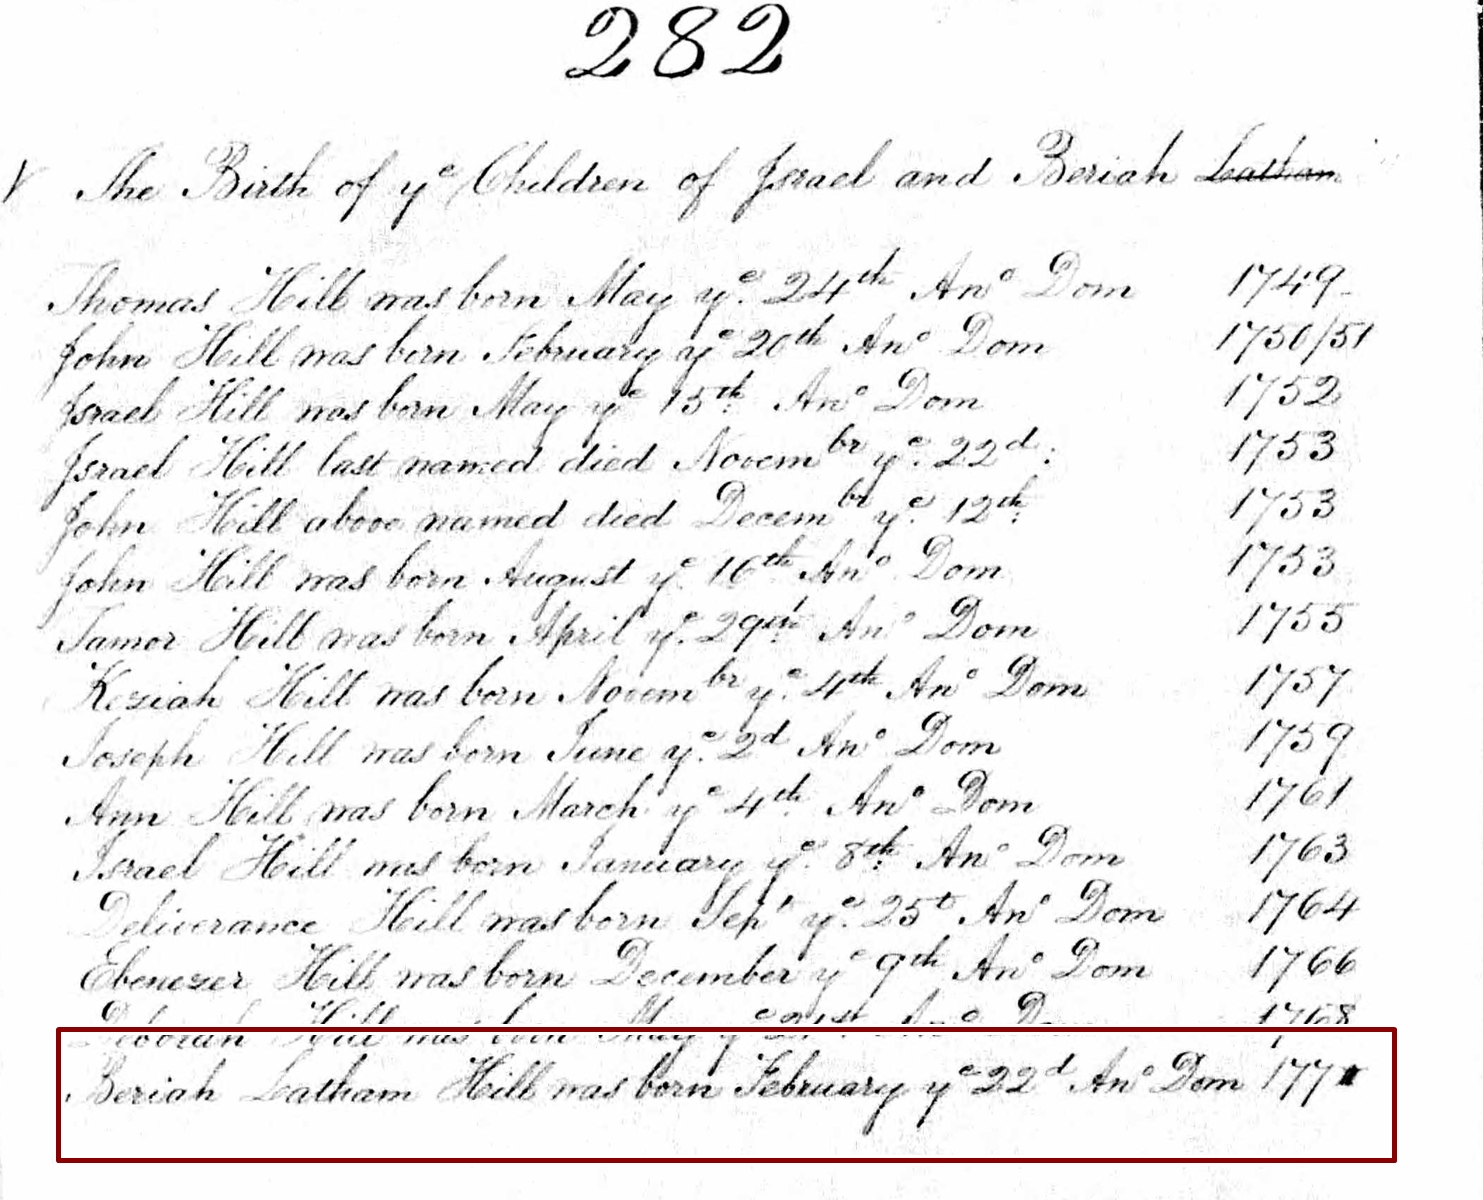 282
The Birth of yᵉ Children of Israel and Beriah Latham
Thomas Hill was born May yᵉ. 24ᵗʰ Anº Dom 1749
John Hill was born February yᵉ 20ᵗʰ Anº Dom 1750/51
Israel Hill was born May yᵉ 15ᵗʰ. Anº Dom 1752
Israel Hill last named died Novemᵇʳ yᵉ. 22ᵈ: 1753
John Hill above named died Decemᵇʳ yᵉ. 12ᵗʰ. 1753
John Hill was born August yᵉ. 16ᵗʰ Anº Dom 1753
Tamor Hill was born April yᵉ. 29ᵗʰ Anº Dom 1755
Keziah Hill was born Novemᵇʳ yᵉ. 4ᵗʰ Anº Dom 1757
Joseph Hill was born June yᵉ. 2ᵈ Anº Dom 1759
Ann Hill was born March yᵉ 4ᵗʰ. Anº Dom 1761
Israel Hill was born January yᵉ. 8ᵗʰ. Anº Dom 1763
Deliverance Hill was born Sepᵗ yᵉ. 25ᵗ Anº Dom 1764
Ebenezer Hill was born December yᵉ 9ᵗʰ Anº Dom 1766
Deborah Hill was born May yᵉ 21ˢᵗ Anº Dom 1768
Beriah Latham Hill was born February yᵉ 22ᵈ Anº Dom 177